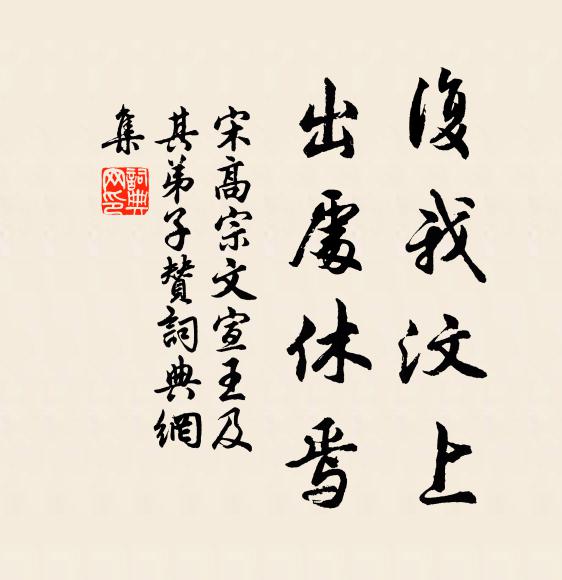 復我汶上
出處休焉
宋高宗文宣王及
其弟子贊詞典網
集
詞典
网印